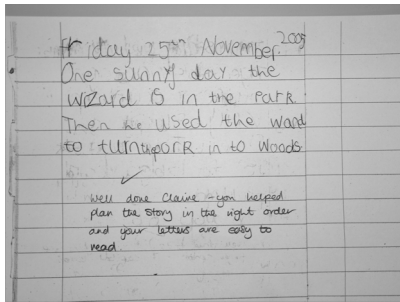 Friday 25th November 2005
One sunny day the
wizard is in the Park.
Then he used the wand
to turn in to Woods
well done Claire - you helped
plan the story in the right order
and your letters are easy to
read.